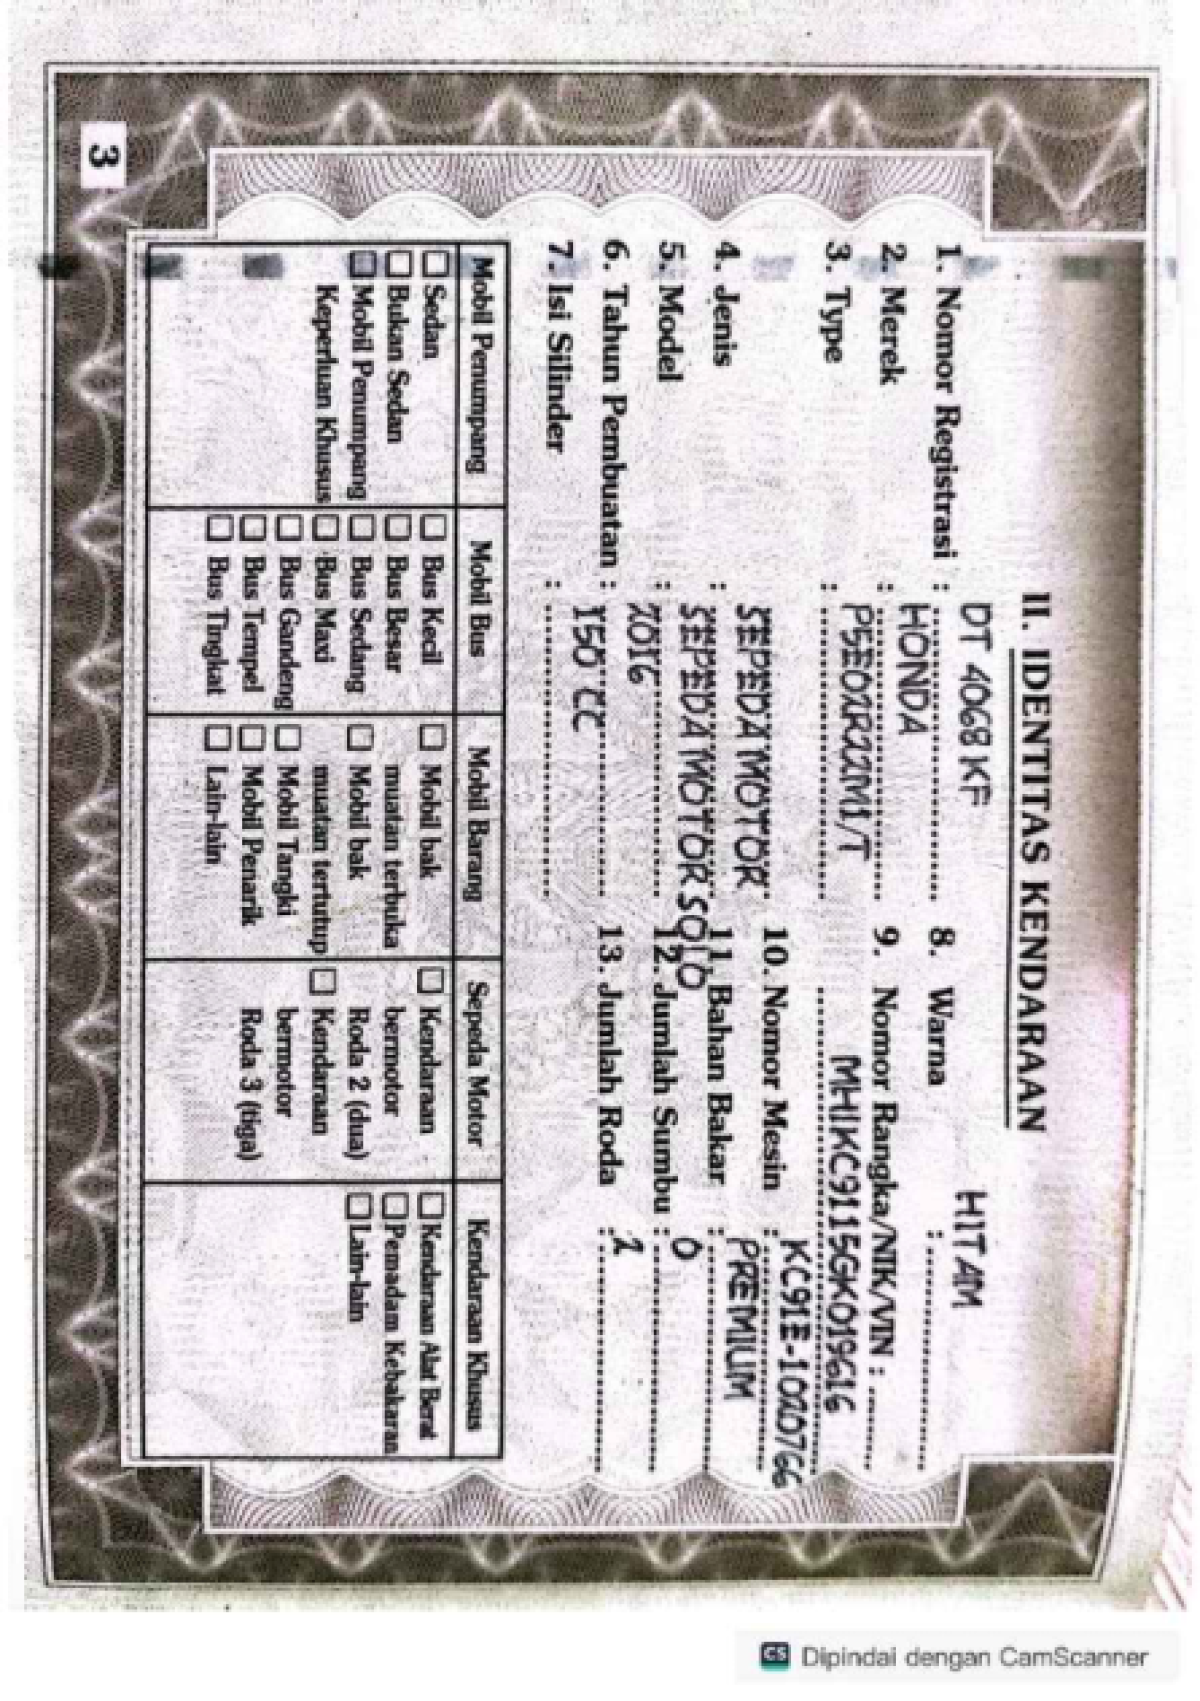 II. IDENTITAS KENDARAAN
1. Nomor Registrasi : DT 4068 KF
2. Merek : HONDA
3. Type : P5E02R22M1/T
4. Jenis : SEPEDA MOTOR
5. Model : SEPEDA MOTOR SOLO
6. Tahun Pembuatan : 2016
7. Isi Silinder : 150 CC
8. Warna : HITAM
9. Nomor Rangka/NIK/VIN :
MH1KC9115GK019616
10. Nomor Mesin : KC91E-1020766
11. Bahan Bakar : PREMIUM
12. Jumlah Sumbu : 0
13. Jumlah Roda : 2
Mobil Penumpang
Sedan
Bukan Sedan
Mobil Penumpang
Keperluan Khusus
Mobil Bus
Bus Kecil
Bus Besar
Bus Sedang
Bus Maxi
Bus Gandeng
Bus Tempel
Bus Tingkat
Mobil Barang
Mobil bak
muatan terbuka
Mobil bak
muatan tertutup
Mobil Tangki
Mobil Penarik
Lain-lain
Sepeda Motor
Kendaraan
bermotor
Roda 2 (dua)
Kendaraan
bermotor
Roda 3 (tiga)
Kendaraan Khusus
Kendaraan Alat Berat
Pemadam Kebakaran
Lain-lain
3
CS Dipindai dengan CamScanner